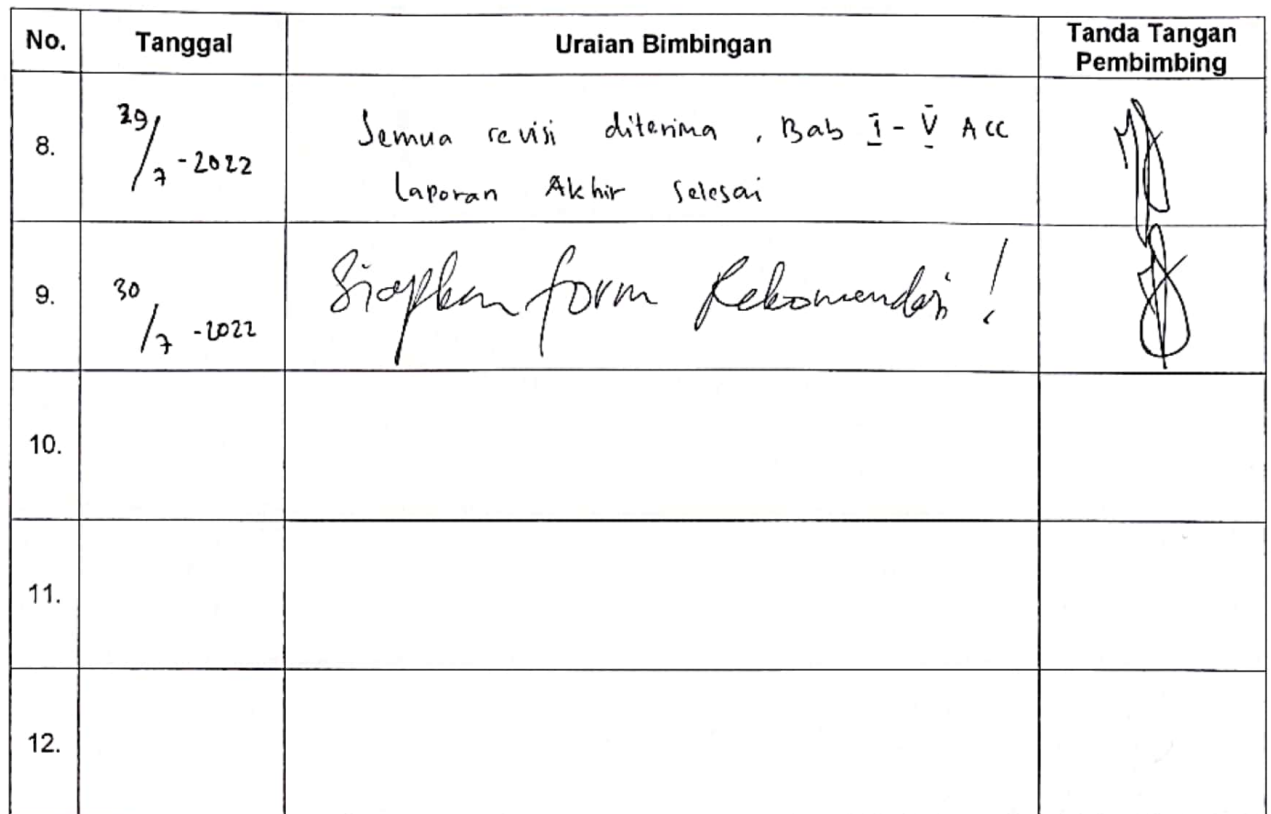 No. Tanggal Uraian Bimbingan Tanda Tangan
Pembimbing
8. 29/7-2022 Semua revisi diterima, Bab I - V Acc
laporan Akhir Selesai
9. 30/7-2022 Siapkan form Rekomendasi!
10.
11.
12.